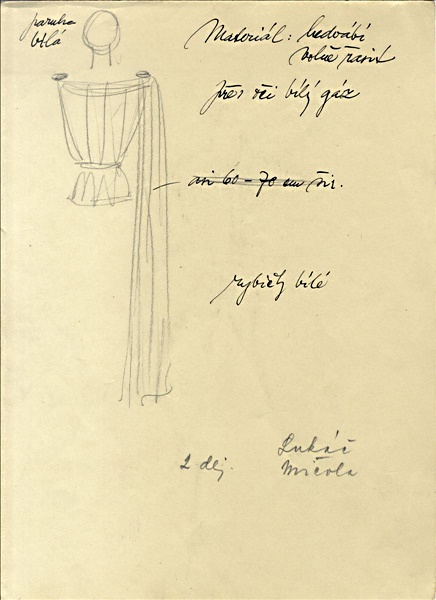 paruka
bílá
Materiál: hedvábí
volně řasit
přes oči bílý gáz
asi 60-70 cm šir.
bílé
2 děj.
Lukáč
Mičola